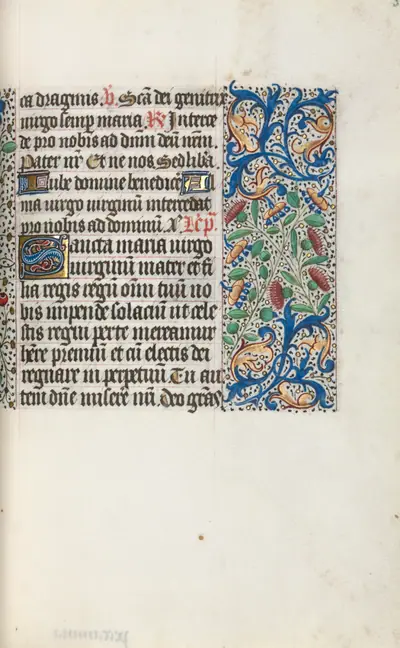 ca draginis. V. Scā dei genitrix
virgo semp maria R Interce
de pro nobis ad dnm deū nrm.
Pater nr Et ne nos Sed liba.
Iube domine benedice Al
ma virgo virginū intercedat
pro nobis ad dominū. R Lcō.
Sancta maria virgo
virginum mater et fi
lia regis regū omī tuū no
bis impende solaciū ut cele
stis regni per te mereamur
here premiū et cū electis dei
regnare in perpetuū Tu au
tem dne misere nri Deo grās